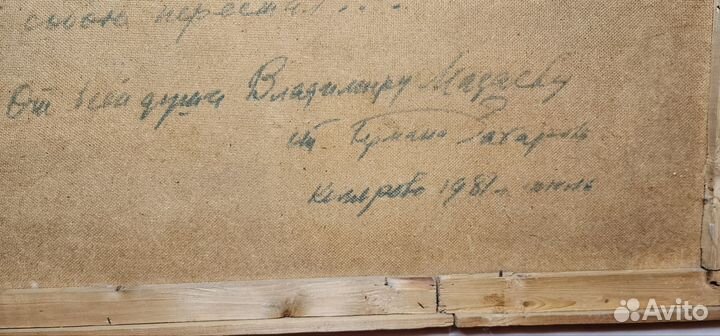 собою перестал...
От всей души Владимиру Мазаеву
от Германа Захарова
Кемерово 1981 г. июль
Avito